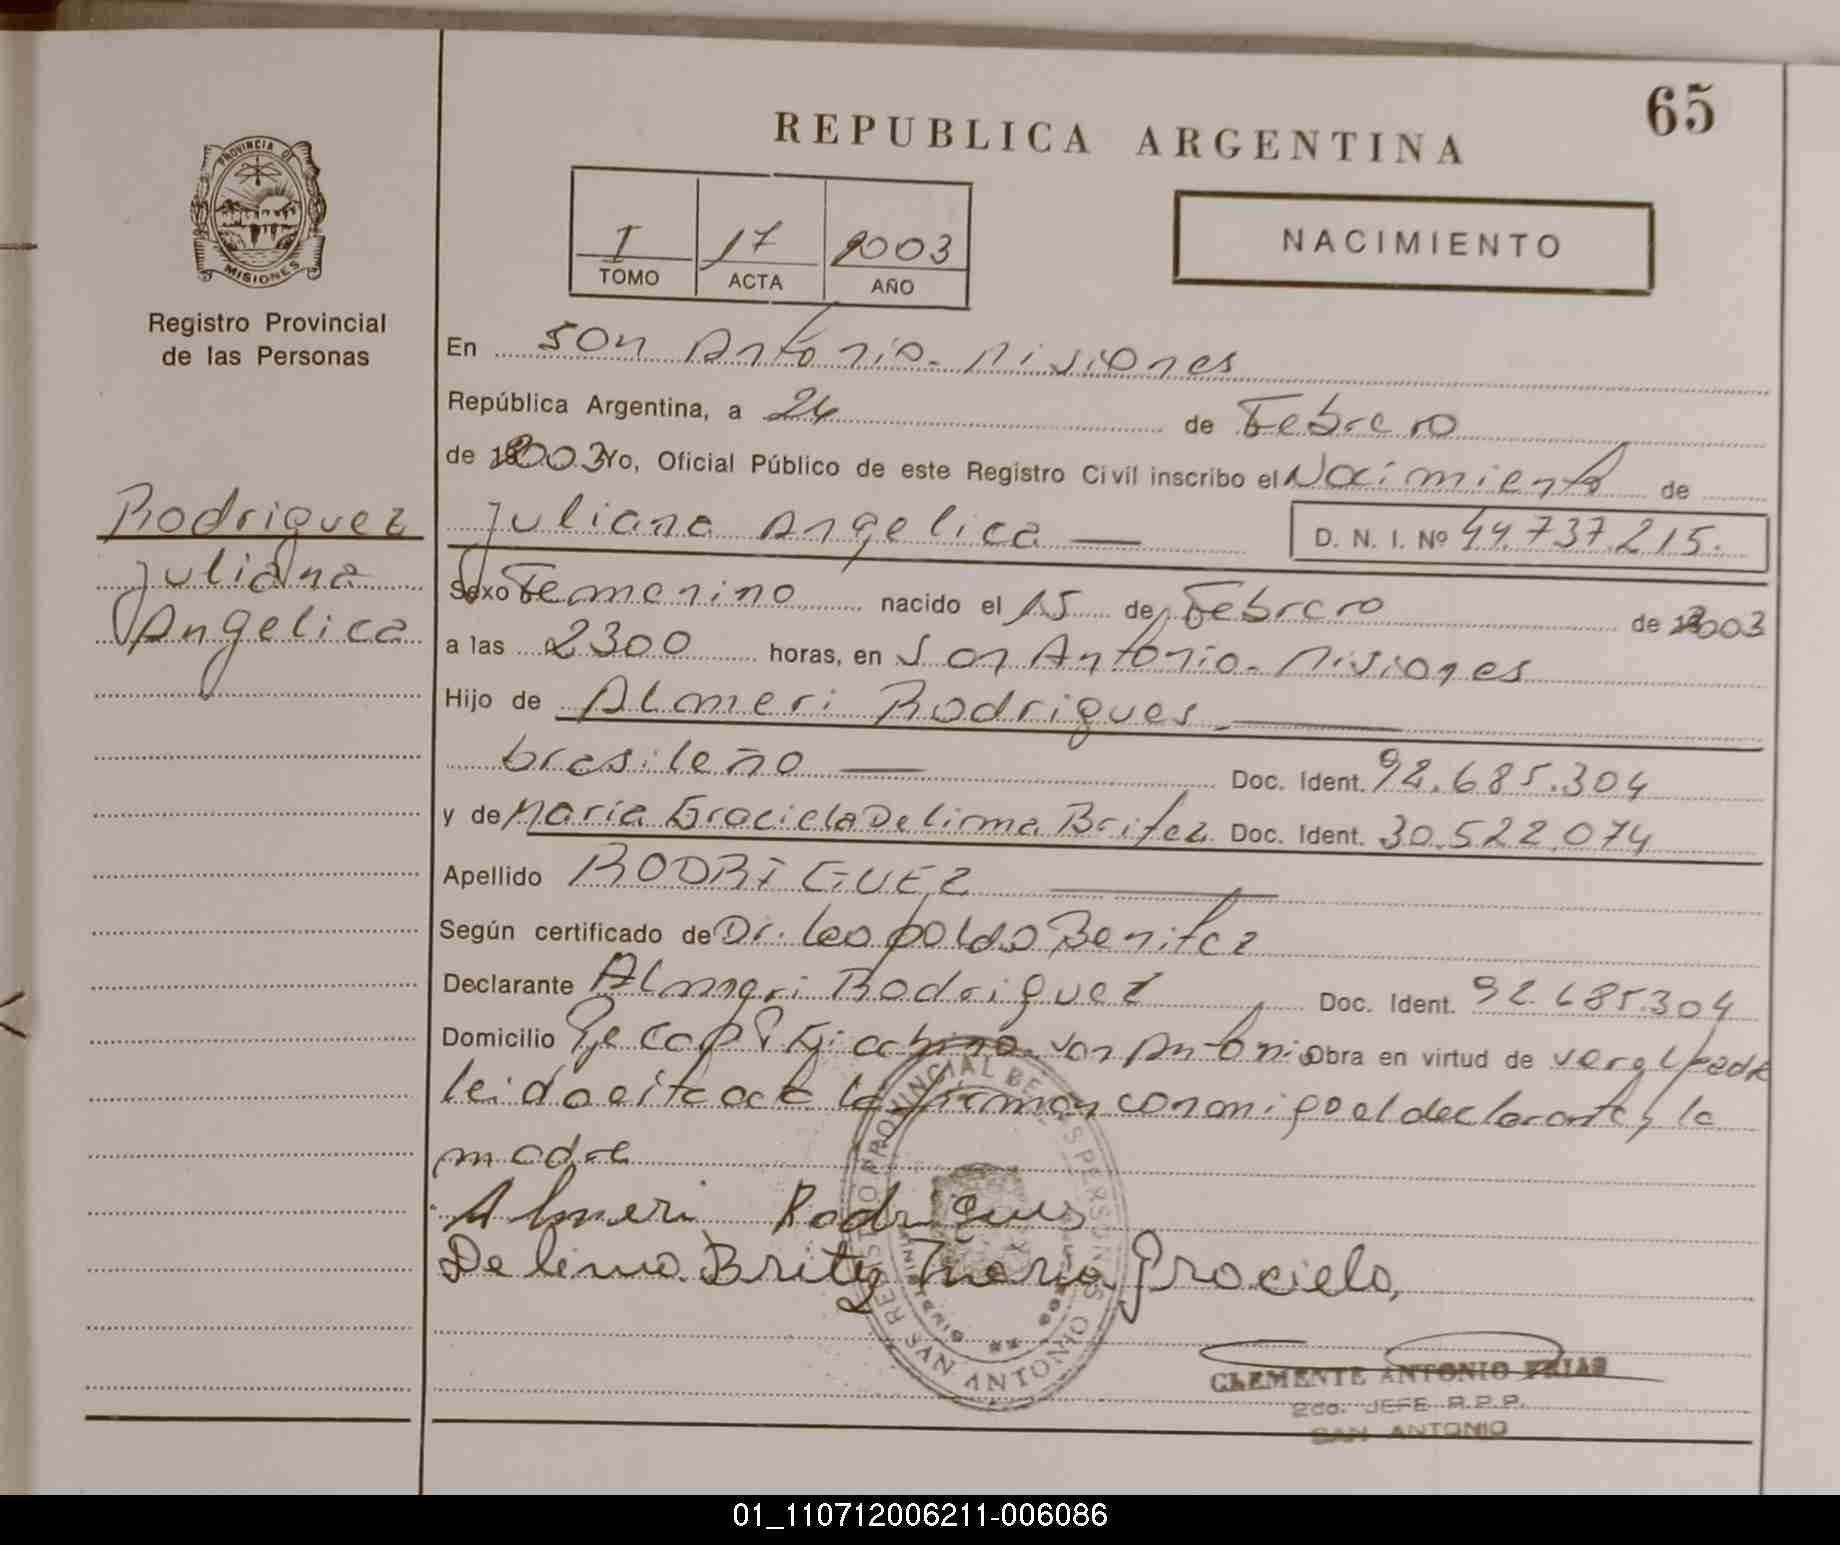 65
REPUBLICA ARGENTINA
PROVINCIA DE
MISIONES
Registro Provincial
de las Personas
I 17 2003
TOMO ACTA AÑO
NACIMIENTO
En San Antonio - Misiones
República Argentina, a 24 de Febrero
de 2003 Yo, Oficial Público de este Registro Civil inscribo el Nacimiento de
Rodriguez
Juliana
Angelica
Juliana Angelica — D. N. I. Nº 44.737.215.
Sexo Femenino nacido el 15 de Febrero de 2003
a las 2300 horas, en San Antonio - Misiones
Hijo de Almeri Rodrigues —
brasileño — Doc. Ident. 92.685.304
y de Maria Graciela De lima Britez Doc. Ident. 30.522.074
Apellido RODRIGUEZ —
Según certificado de Dr. Leopoldo Benitez
Declarante Almeri Rodriguez Doc. Ident. 92.685.304
Domicilio San Antonio Obra en virtud de
leida esta acta la firman conmigo el declarante y la
madre
Almeri Rodrigues
De lima Britez Maria Graciela
REGISTRO PROVINCIAL DE LAS PERSONAS
SAN ANTONIO
CLEMENTE ANTONIO FRIAS
2do. JEFE R.P.P.
SAN ANTONIO
01_110712006211-006086